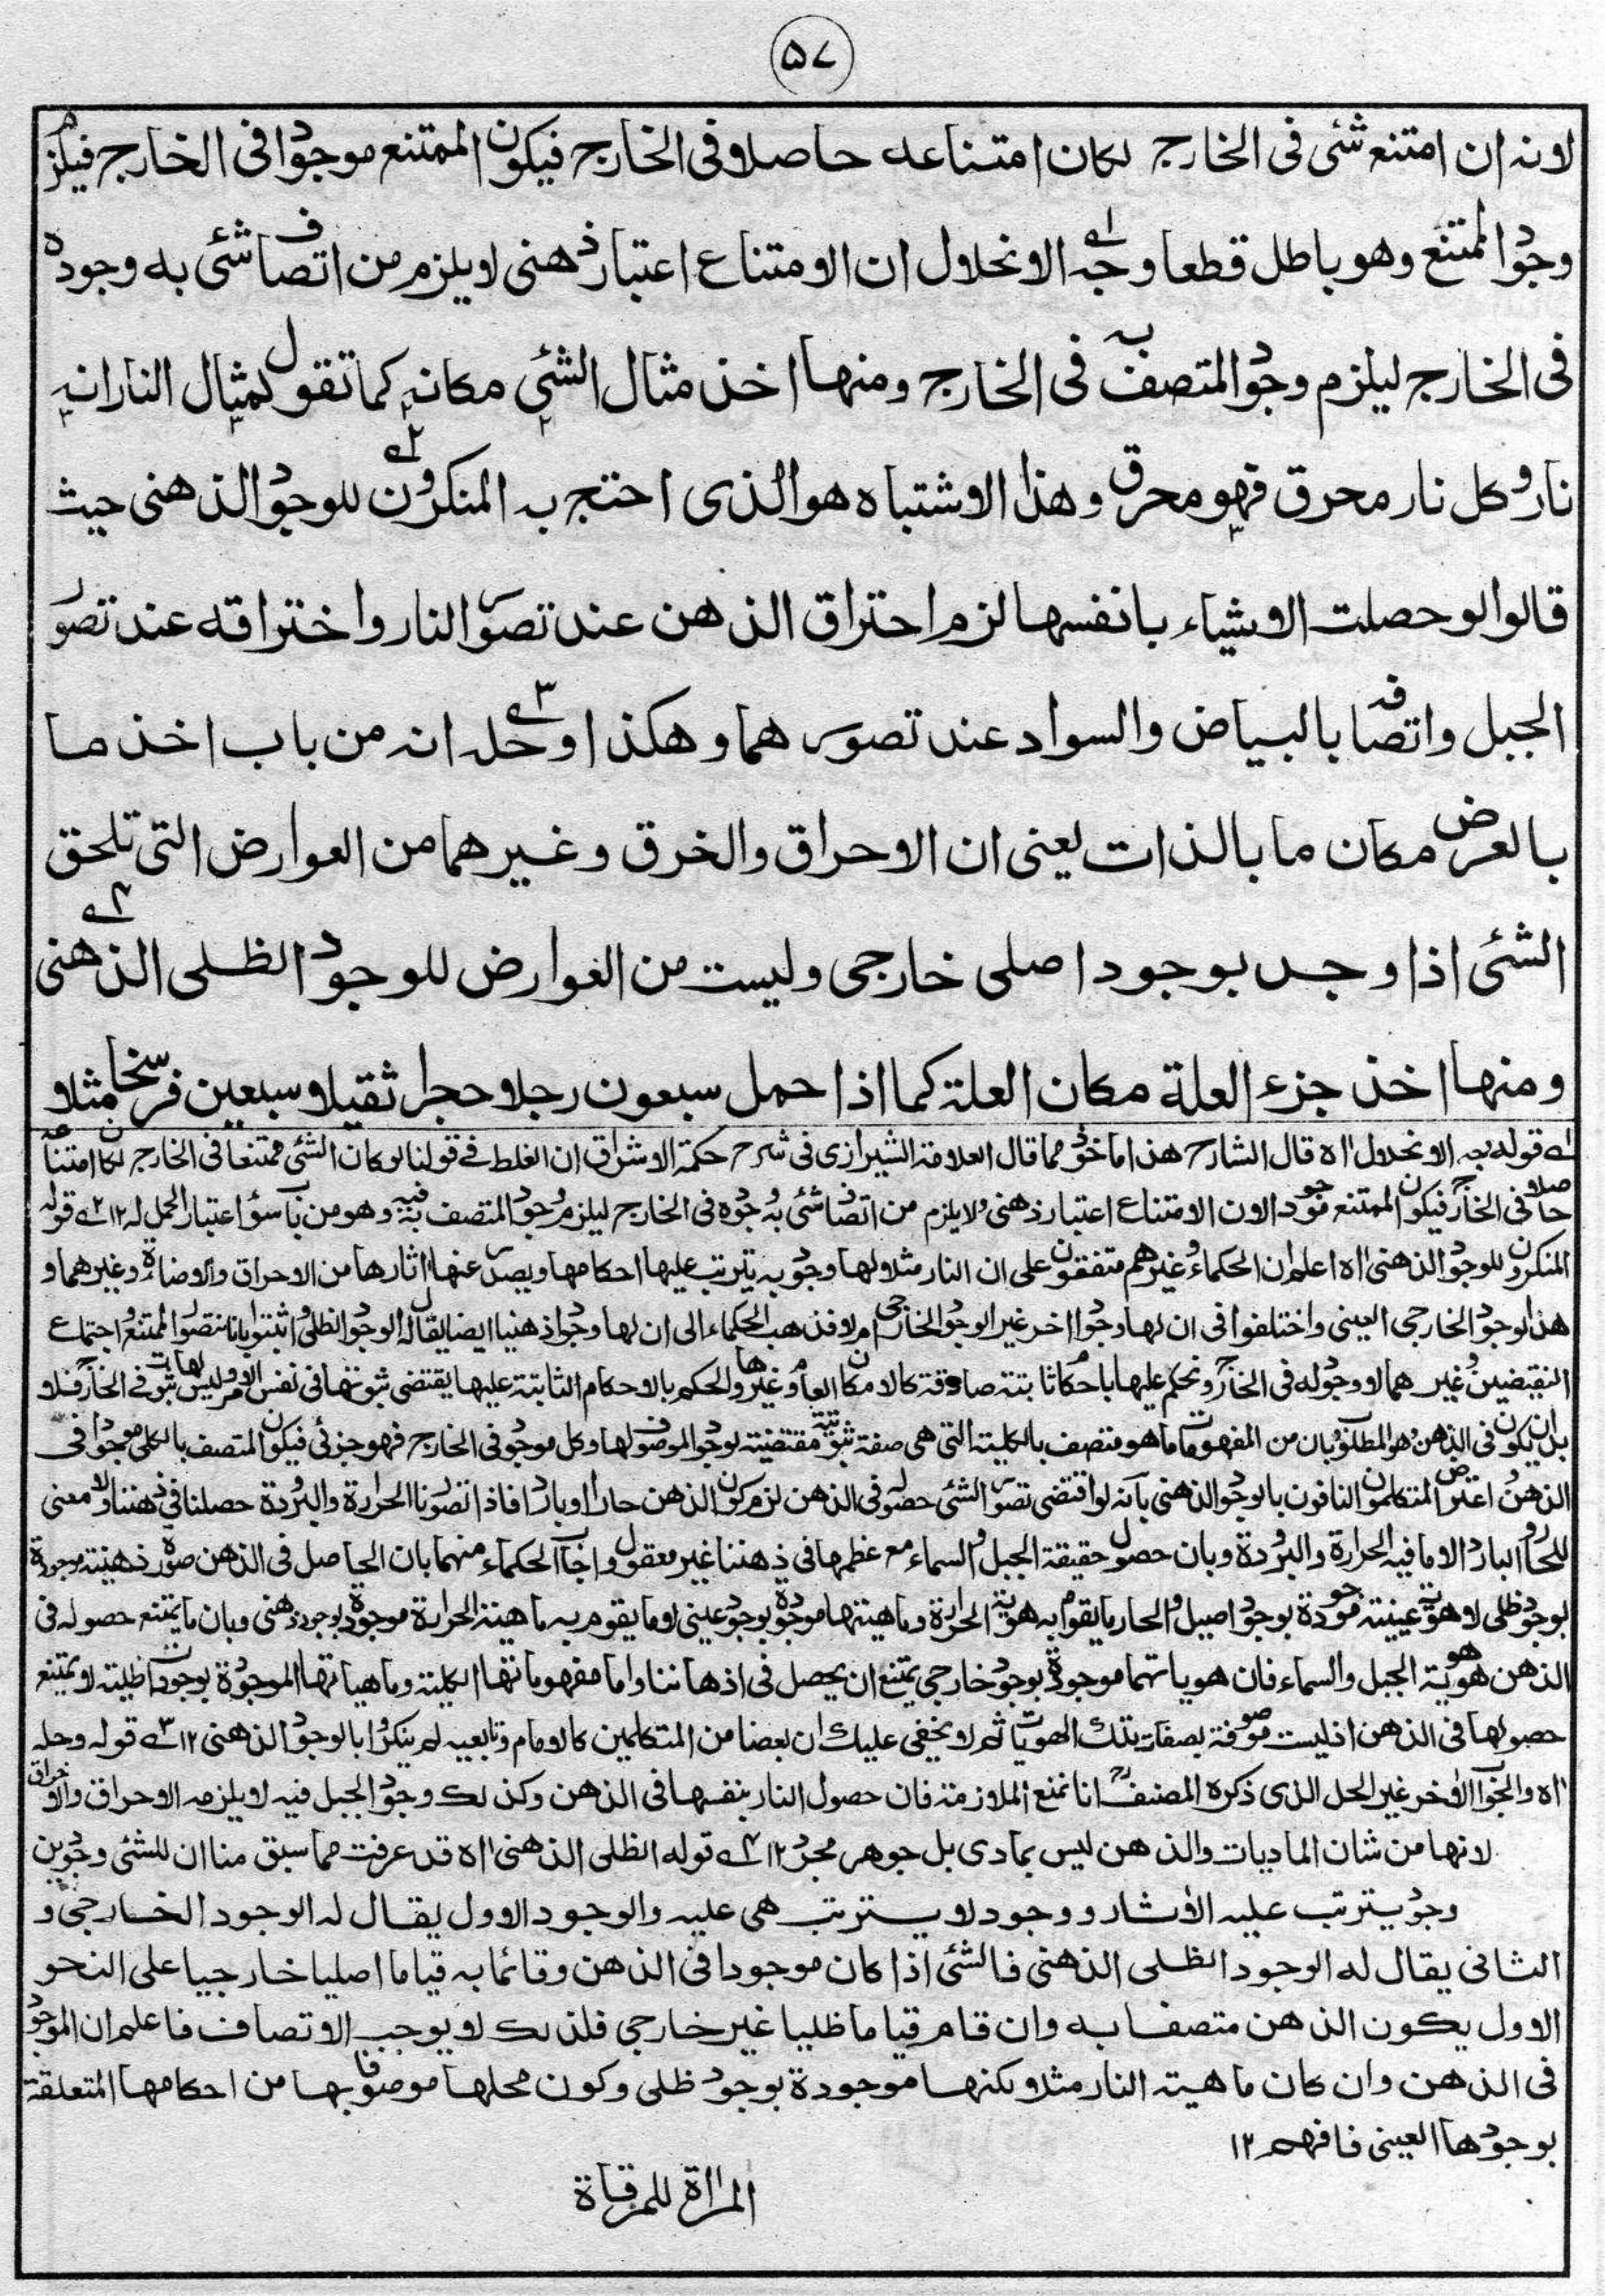 ٥٧
لانه ان امتنع شئى فى الخارج لكان امتناعه حاصلا فى الخارج فيكون الممتنع موجودا فى الخارج فيلزم
وجود الممتنع وهو باطل قطعا وجه الانحلال ان الامتناع اعتبار ذهنى لا يلزم من اتصاف شئى به وجوده
فى الخارج ليلزم وجود المتصف به فى الخارج ومنها اخذ مثال الشئى مكانه كما تقول لمثال النار انه
نار وكل نار محرق فهو محرق وهذا الاشتباه هو الذى احتج به المنكرون للوجود الذهنى حيث
قالوا لو حصلت الاشياء بانفسها لزم احتراق الذهن عند تصور النار واختراقه عند تصور
الجبل واتصافه بالبياض والسواد عند تصورهما وهكذا وحله انه من باب اخذ ما
بالعرض مكان ما بالذات يعنى ان الاحراق والخرق وغيرهما من العوارض التى تلحق
الشئى اذا وجد بوجود اصلى خارجى وليست من العوارض للوجود الظلى الذهنى
ومنها اخذ جزء العلة مكان العلة كما اذا حمل سبعون رجلا حجرا ثقيلا سبعين فرسخا مثلا
١ـه قوله وجه الانحلال اه قال الشارح هذا ماخوذ مما قال العلامة الشيرازى فى شرح حكمة الاشراق ان الغلط فے قولنا لو كان الشئى ممتنعا فى الخارج لكان امتناعه
حاصلا فى الخارج فيكون الممتنع موجودا لان الامتناع اعتبار ذهنى ولا يلزم من اتصاف شئى به وجوده فى الخارج ليلزم وجود المتصف به فيه وهو من باب سوء اعتبار الحمل له ١٢ ٢ـه قوله
المنكرون للوجود الذهنى اه اعلم ان الحكماء وغيرهم متفقون على ان النار مثلا لها وجود به يترتب عليها احكامها ويصدر عنها اثارها من الاحراق والاضاءة وغيرهما و
هذا الوجود الخارجى العينى واختلفوا فى ان لها وجودا اخر غير الوجود الخارجى ام لا فذهب الحكماء الى ان لها وجودا ذهنيا ايضا يقال له الوجود الظلى واثبتوا بانا نتصور الممتنع واجتماع
النقيضين وغيرهما لا وجود له فى الخارج ونحكم عليها باحكام ثابتة صادقة كالامكان العام وغيرها والحكم بالاحكام الثابتة عليها يقتضى ثبوتها فى نفس الامر وليس لها ثبوت فے الخارج فلا
بد ان يكون فى الذهن وهو المطلوب وبان من المفهومات ما هو متصف بالكلية التى هى صفة ثبوتية مقتضية لوجود الموصوف لها وكل موجود فى الخارج فهو جزئى فيكون المتصف بالكلى موجودا فى
الذهن واعترض المتكلمون النافون بالوجود الذهنى بانه لو اقتضى تصور الشئى حصوله فى الذهن لزم كون الذهن حارا وباردا فاذا تصورنا الحرارة والبرودة حصلتا فى ذهننا ولا معنى
للحار والبارد الا ما فيه الحرارة والبرودة وبان حصول حقيقة الجبل والسماء مع عظمها فى ذهننا غير معقول واجاب الحكماء منهما بان الحاصل فى الذهن صورة ذهنية موجودة
بوجود ظلى لا هوية عينية موجودة بوجود اصيل والحار ما يقوم به هوية الحرارة وماهيتها موجودة بوجود عينى لا ما يقوم به ماهية الحرارة موجودة بوجود ذهنى وبان ما يمتنع حصوله فى
الذهن هو هوية الجبل والسماء فان هوياتهما موجودة بوجود خارجى يمتنع ان يحصل فى اذهاننا واما مفهوماتها الكلية وماهياتها الموجودة بوجودات ظلية لا يمتنع
حصولها فى الذهن اذ ليست موصوفة بصفات تلك الهويات ثم لا يخفى عليك ان بعضا من المتكلمين كالامام وتابعيه لم ينكروا بالوجود الذهنى ١٢ ٣ـه قوله وحله
اه والجواب الاخر غير الحل الذى ذكره المصنف انا نمنع الملازمة فان حصول النار بنفسها فى الذهن وكذلك وجود الجبل فيه لا يلزمه الاحراق والاختراق
لانها من شان الماديات والذهن ليس بمادى بل جوهر مجرد ١٢ ٤ـه قوله الظلى الذهنى اه قد عرفت مما سبق منا ان للشئى وجودين
وجود يترتب عليه الاثار ووجود لا يترتب هى عليه والوجود الاول يقال له الوجود الخارجى و
الثانى يقال له الوجود الظلى الذهنى فالشئى اذا كان موجودا فى الذهن وقائما به قياما اصليا خارجيا على النحو
الاول يكون الذهن متصفا به وان قام قياما ظليا غير خارجى فلذلك لا يوجب الاتصاف فاعلم ان الموجود
فى الذهن وان كان ماهية النار مثلا لكنها موجودة بوجود ظلى وكون محلها موصوفا بها من احكامها المتعلقة
بوجودها العينى فافهم ١٢
المرأة للمرقاة